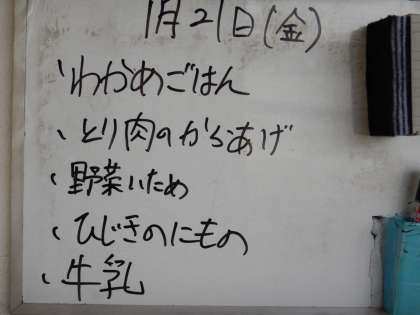 1月21日(金)
、わかめごはん
、とり肉のからあげ
、野菜いため
、ひじきのにもの
、牛乳